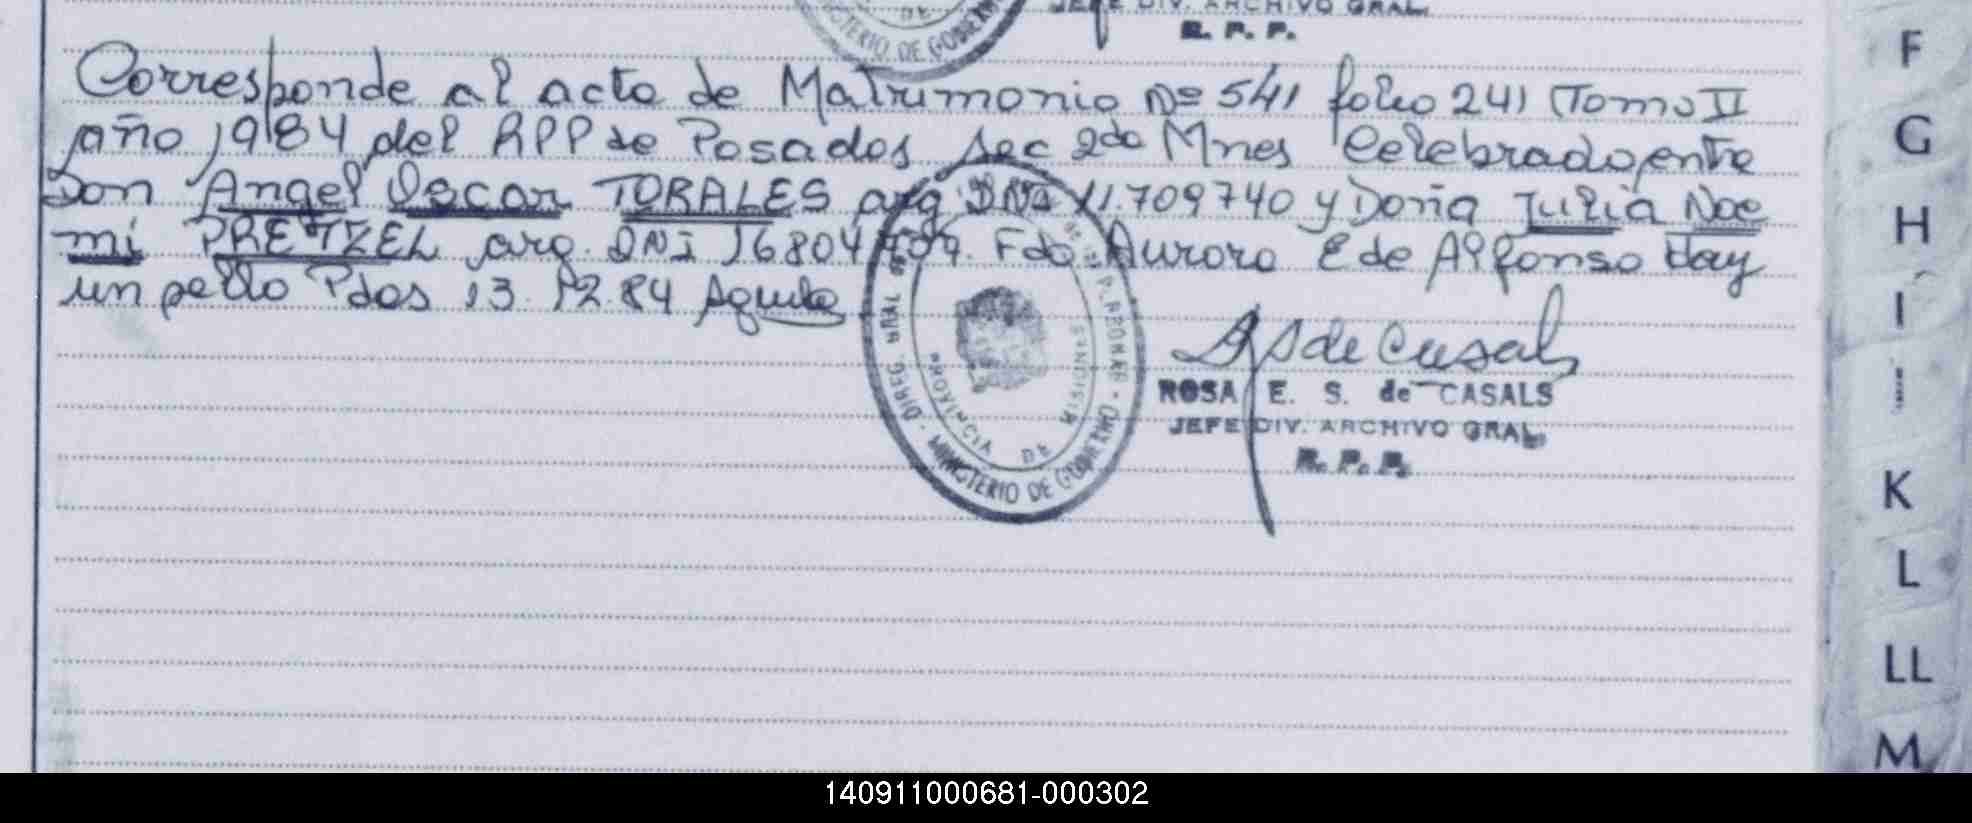 MINISTERIO DE GOBIERNO
DE
JEFE DIV. ARCHIVO GRAL.
R. P. P.
Corresponde al acta de Matrimonio Nº 541 folio 241 Tomo II
año 1984 del RPP de Posadas Sec 2da Mnes Celebrado entre
Don Angel Oscar TORALES arg DNI 11.709740 y Doña Julia Noe
mi PRETZEL arg. DNI 16804 Fdo. Aurora E de Alfonso Hay
un sello Pdas 13.12.84
DIREC. GRAL DE P. PERSONAS - MINISTERIO DE GOBIERNO
PROVINCIA DE MISIONES
S de Casals
ROSA E. S. de CASALS
JEFE DIV. ARCHIVO GRAL.
R. P. P.
F
G
H
I
K
L
LL
M
140911000681-000302